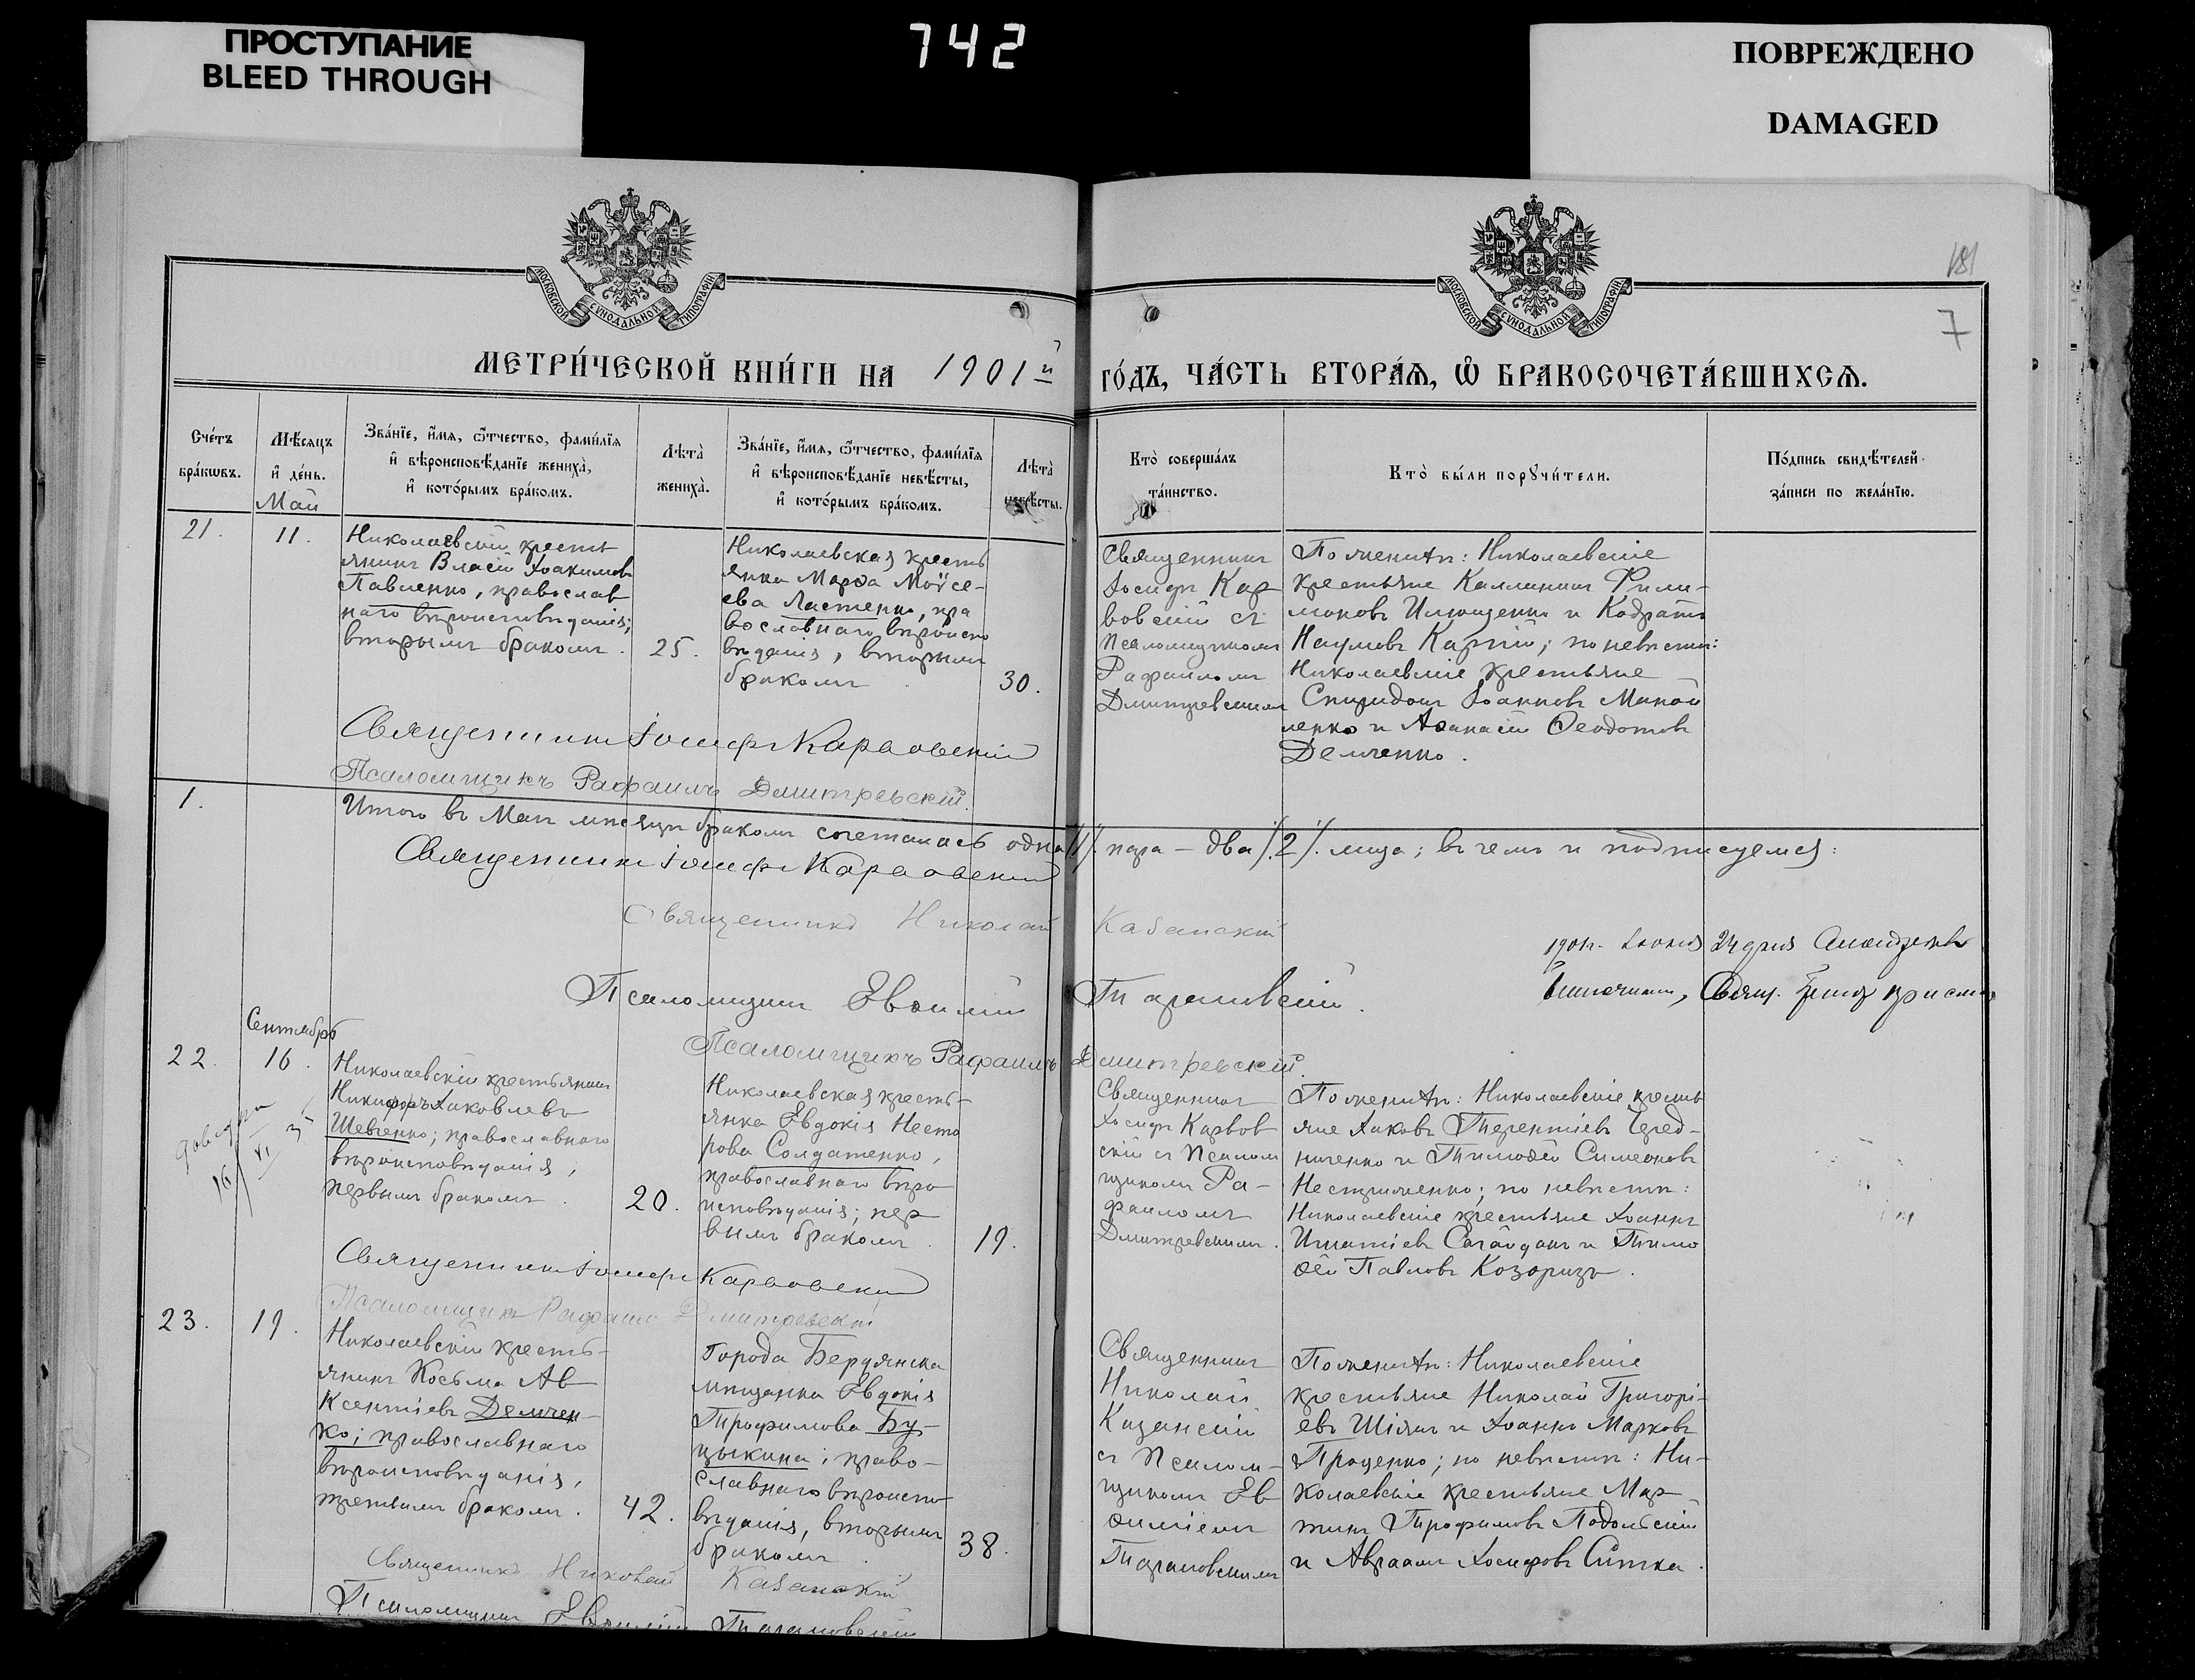 ПРОСТУПАНИЕ
BLEED THROUGH
742
ПОВРЕЖДЕНО
DAMAGED
МОСКОВСКОЙ СУНОДАЛЬНОЙ ТИПОГРАФІИ
МОСКОВСКОЙ СУНОДАЛЬНОЙ ТИПОГРАФІИ
181
7
МЕТРИ́ЧЕСКОЙ КНИ́ГИ НА 1901й
ГО́ДЪ, ЧА́СТЬ ВТОРА́Я, Ѡ БРАКОСОЧЕТА́ВШИХСЯ.
Сче́тъ
бра́кѡвъ.
Мѣ́сяцъ
и҆ де́нь.
Май
Зва́нїе, и҆́мя, ѻ҆́тчество, фами́лїя
и҆ вѣроисповѣ́данїе жениха̀,
и҆ кото́рымъ бра́комъ.
Лѣта̀
жениха̀.
Зва́нїе, и҆́мя, ѻ҆́тчество, фами́лїя
и҆ вѣроисповѣ́данїе невѣ́сты,
и҆ кото́рымъ бра́комъ.
Лѣта̀
невѣ́сты.
Кто̀ соверша́лъ
та́инство.
Кто̀ бы́ли порꙋчи́тели.
По́дпись свидѣ́телей
за́писи по жела́нїю.
21.
11.
Николаевскій кресть
янинъ Власій Іоакимовъ
Павленко, православ
наго вѣроисповѣданія;
вторымъ бракомъ.
25.
Николаевская кресть
янка Марѳа Моѵсе-
ева Ластенко, пра
вославнаго вѣроиспо
вѣданія, вторымъ
бракомъ.
30.
Священникъ
Іосифъ Кар
вовскій съ
Псаломщикомъ
Рафаиломъ
Дмитревскимъ
По женихѣ: Николаевскіе
крестьяне Каллиникъ Фили-
моновъ Илющенко и Кодратъ
Наумовъ Карпій; по невѣстѣ:
Николаевскіе крестьяне
Спиридонъ Іоанновъ Маной
ленко и Аѳанасій Ѳеодотовъ
Демченко.
Священникъ Іосифъ Карвовскій
Псаломщикъ Рафаилъ Дмитревскій.
1.
Итого въ Маѣ мѣсяцѣ бракомъ сочеталась одна /1/. пара – два /.2/. лица; въ чемъ и подписуемся:
Священникъ Іосифъ Карвовскій
Священникъ Николай Казанскій
1901г. Іюня 24 дня
Псаломщикъ Евѳимій Тарановскій.
Псаломщикъ Рафаилъ Дмитревскій.
Сентябрь
22.
16.
16/VI
Николаевскій крестьянинъ
Никифоръ Іаковлевъ
Шевченко; православнаго
вѣроисповѣданія,
первымъ бракомъ.
20.
Николаевская кресть-
янка Евдокія Несто
рова Солдатенко,
православнаго вѣро
исповѣданія; пер
вымъ бракомъ.
19.
Священникъ
Іосифъ Карвов
скій съ Псалом
щикомъ Ра-
фаиломъ
Дмитревскимъ.
По женихѣ: Николаевскіе кресть
яне Іаковъ Терентіевъ Черед-
ниченко и Тимоѳей Симеоновъ
Нестриженко; по невѣстѣ:
Николаевскіе крестьяне Іоаннъ
Игнатіевъ Сагайдакъ и Тимо
ѳей Павловъ Козоризъ.
Священникъ Іосифъ Карвовскій
Псаломщикъ Рафаилъ Дмитревскій
23.
19.
Николаевскій кресть-
янинъ Косьма Ав
ксентіевъ Демчен-
ко; православнаго
вѣроисповѣданія,
третьимъ бракомъ.
42.
Города Бердянска
мѣщанка Евдокія
Трофимова Бу-
цыкина; право-
славнаго вѣроиспо
вѣданія, вторымъ
бракомъ.
38.
Священникъ
Николай
Казанскій
съ Псалом-
щикомъ Ев
ѳиміемъ
Тарановскимъ
По женихѣ: Николаевскіе
крестьяне Николай Григорі-
евъ Шіянъ и Іоаннъ Марковъ
Проценко; по невѣстѣ: Ни-
колаевскіе крестьяне Мар
тинъ Трофимовъ Подольскій
и Авраамъ Іосифовъ Ситка.
Священникъ Николай Казанскій
Псаломщикъ Евѳимій Тарановскій